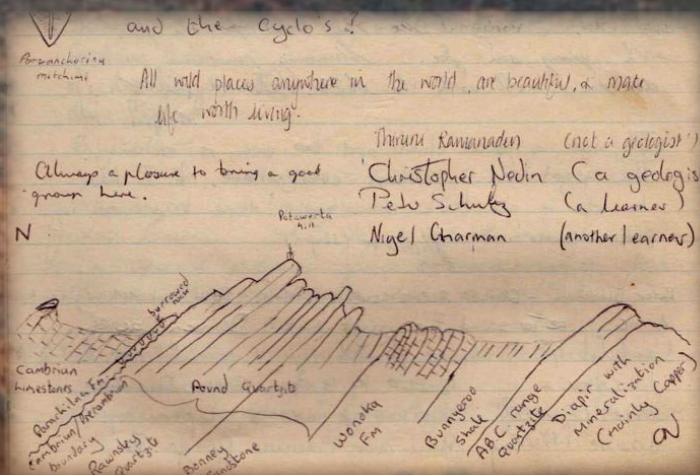 and the Cyclo's?
Parvanchorina
mitchimi
All wild places anywhere in the world, are beautiful, & make
life worth living.
Thiruni Ramanaden (not a geologist)
Always a pleasure to bring a good
group here.
Christopher Nedin (a geologis
Peter Schultz (a learner)
Nigel Charman (another learner)
N
Patawarta
hill
burrowed
Cambrian
limestones
Parachilna Fm
Cambrian/Precambrian
boundary
Pound Quartzite
Rawnsley
Quartzite
Bonney
Sandstone
Wonoka
FM
Bunnyeroo
Shale
ABC range
Quartzite
Diapir with
Mineralization
(mainly Copper)